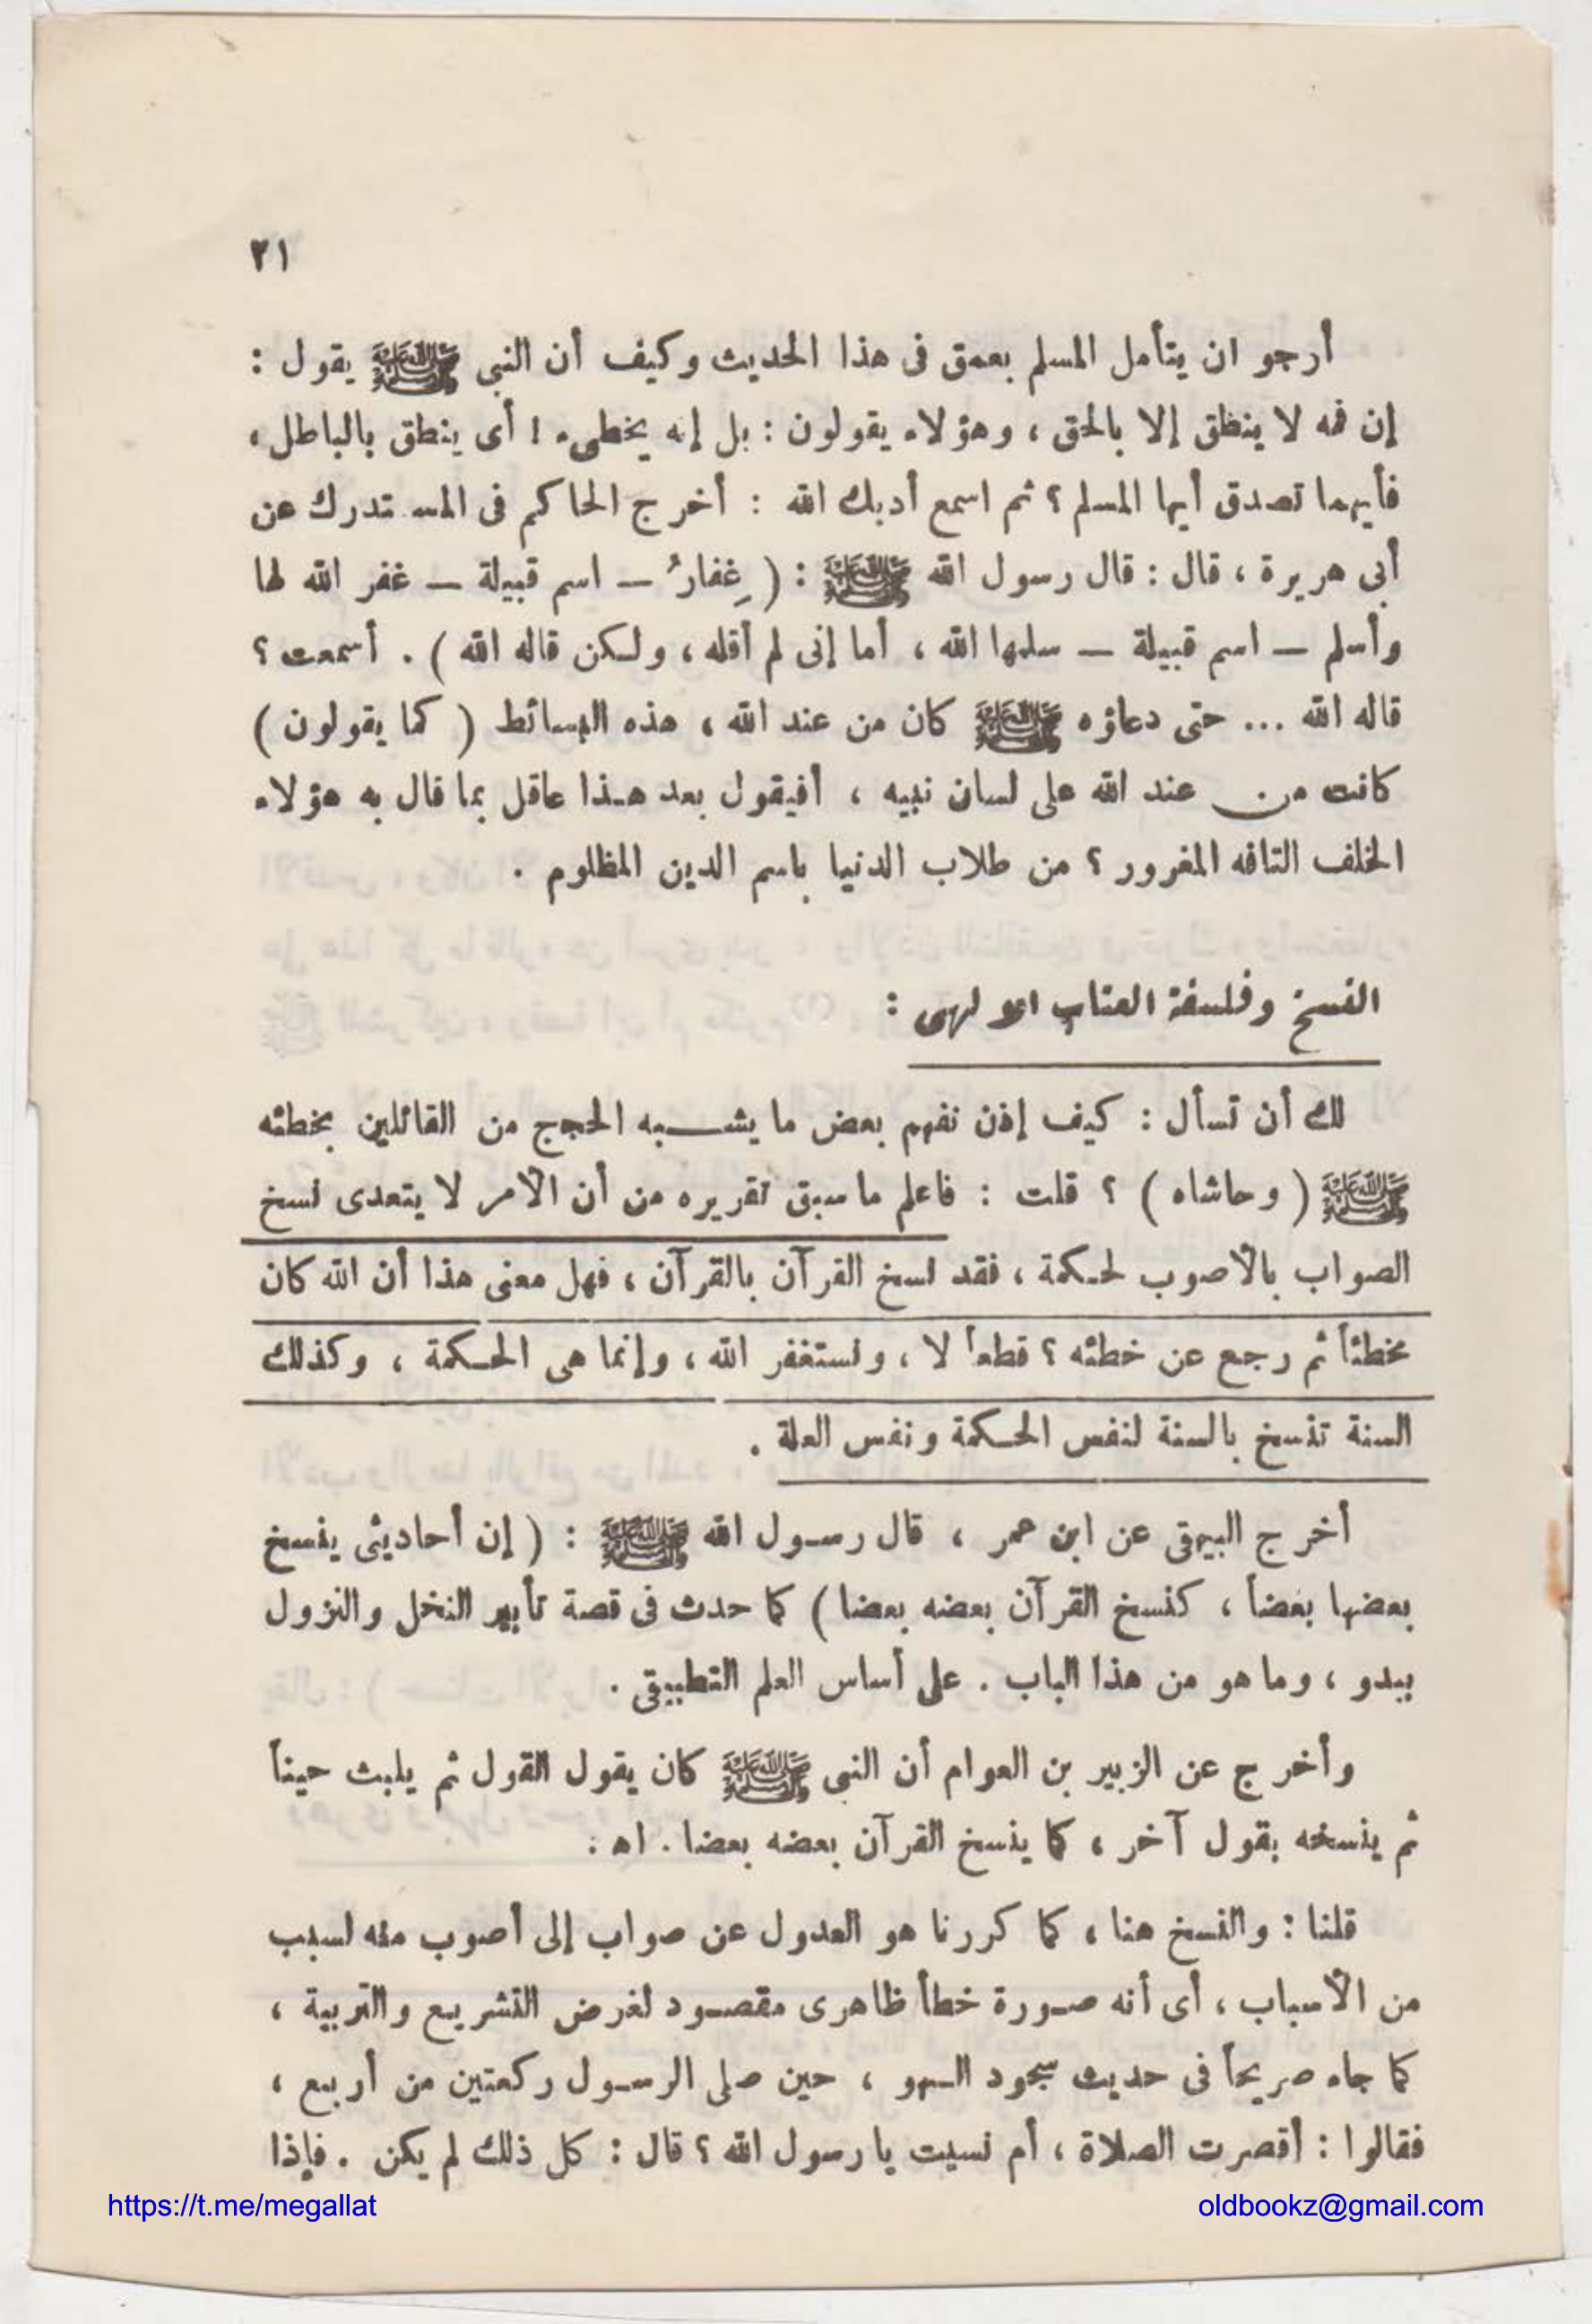 ٢١
أرجو ان يتأمل المسلم بعمق فى هذا الحديث وكيف أن النبى ﷺ يقول :
إن فمه لا ينطق إلا بالحق ، وهؤلاء يقولون : بل إنه يخطىء ! أى ينطق بالباطل ،
فأيهما تصدق أيها المسلم ؟ ثم اسمع أدبك الله : أخرج الحاكم فى المستدرك عن
أبى هريرة ، قال : قال رسول الله ﷺ : ( غِفارُ – اسم قبيلة – غفر الله لها
وأسلم – اسم قبيلة – سلمها الله ، أما إنى لم أقله ، ولكن قاله الله ) . أسمعت ؟
قاله الله ... حتى دعاؤه ﷺ كان من عند الله ، هذه البسائط ( كما يقولون )
كانت من عند الله على لسان نبيه ، أفيقول بعد هذا عاقل بما قال به هؤلاء
الخلف التافه المغرور ؟ من طلاب الدنيا باسم الدين المظلوم .
النسخ وفلسفة العتاب الإلهى :
لك أن تسأل : كيف إذن نفهم بعض ما يشبه الحجج من القائلين بخطئه
ﷺ ( وحاشاه ) ؟ قلت : فاعلم ما سبق تقريره من أن الأمر لا يتعدى نسخ
الصواب بالأصوب لحكمة ، فقد نسخ القرآن بالقرآن ، فهل معنى هذا أن الله كان
مخطئاً ثم رجع عن خطئه ؟ قطعاً لا ، ونستغفر الله ، وإنما هى الحكمة ، وكذلك
السنة تنسخ بالسنة لنفس الحكمة ونفس العلة .
أخرج البيهقى عن ابن عمر ، قال رسول الله ﷺ : ( إن أحاديثى ينسخ
بعضها بعضاً ، كنسخ القرآن بعضه بعضا ) كما حدث فى قصة تأبير النخل والنزول
ببدو ، وما هو من هذا الباب . على أساس العلم التطبيقى .
وأخرج عن الزبير بن العوام أن النبى ﷺ كان يقول القول ثم يلبث حيناً
ثم ينسخه بقول آخر ، كما ينسخ القرآن بعضه بعضا . اه .
قلنا : والنسخ هنا ، كما كررنا هو العدول عن صواب إلى أصوب منه لسبب
من الأسباب ، أى أنه صورة خطأ ظاهرى مقصود لغرض التشريع والتربية ،
كما جاء صريحاً فى حديث سجود السهو ، حين صلى الرسول ركعتين من أربع ،
فقالوا : أقصرت الصلاة ، أم نسيت يا رسول الله ؟ قال : كل ذلك لم يكن . فإذا
https://t.me/megallat
oldbookz@gmail.com